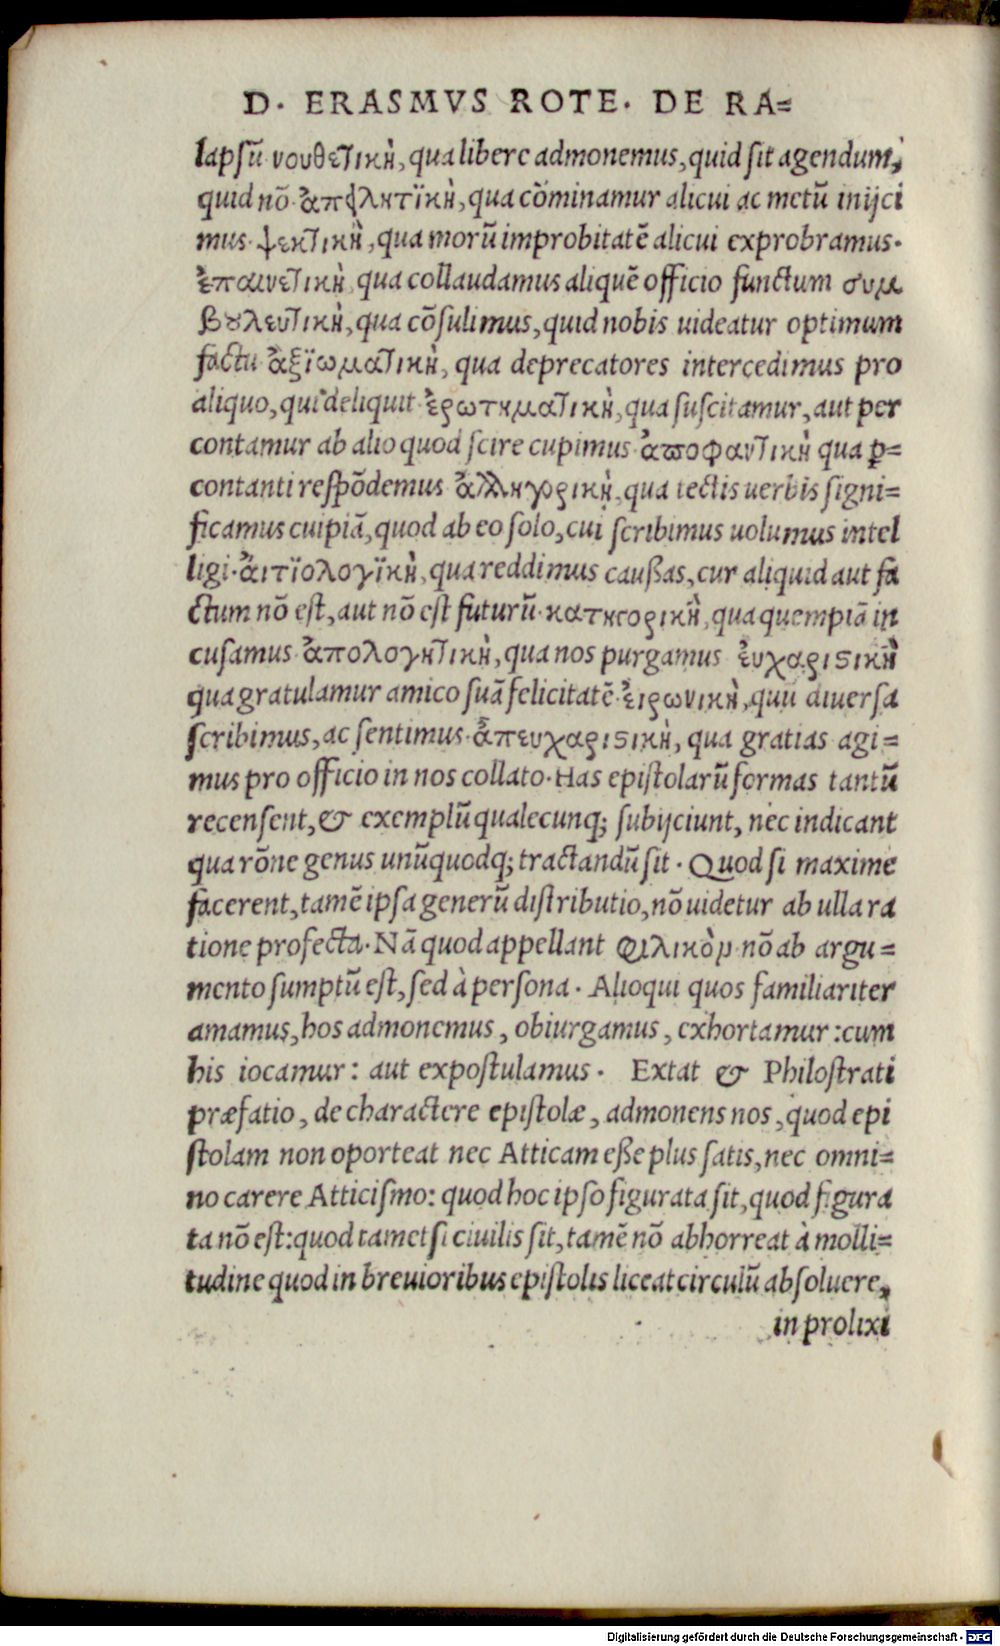 D. ERASMVS ROTE. DE RA=
lapsū νουθετικὴ, qua libere admonemus, quid sit agendum,
quid nō. ἀπειλητϊκὴ, qua cōminamur alicui ac metū inijci
mus. ψεκτικὴ, qua morū improbitatē alicui exprobramus.
ἐπαινετικὴ, qua collaudamus aliquē officio functum συμ
βȣλευτικὴ, qua cōsulimus, quid nobis uideatur optimum
factu. ἀξϊωματικὴ, qua deprecatores intercedimus pro
aliquo, qui deliquit. ἐρωτηματικὴ, qua suscitamur, aut per
contamur ab alio quod scire cupimus. ἀποφαντικὴ qua ꝑ=
contanti respōdemus. ἀλληγορικὴ, qua tectis uerbis signi=
ficamus cuipiā, quod ab eo solo, cui scribimus uolumus intel
ligi. ἀιτϊολογϊκὴ, qua reddimus caußas, cur aliquid aut fa
ctum nō est, aut nō est futurū. κατηγορικὴ, qua quempiā in
cusamus. ἀπολογητικὴ, qua nos purgamus ἐυχαριϛικὴ
qua gratulamur amico suā felicitatē. ἐιρωνικὴ, quū diuersa
scribimus, ac sentimus. ἀπευχαριϛικὴ, qua gratias agi=
mus pro officio in nos collato. Has epistolarū formas tantū
recensent, & exemplū qualecunq; subijciunt, nec indicant
qua rōne genus unūquodq; tractandū sit. Quod si maxime
facerent, tamē ipsa generū distributio, nō uidetur ab ulla ra
tione profecta. Nā quod appellant φιλικὸν nō ab argu=
mento sumptū est, sed à persona. Alioqui quos familiariter
amamus, hos admonemus, obiurgamus, exhortamur: cum
his iocamur: aut expostulamus. Extat & Philostrati
præfatio, de charactere epistolæ, admonens nos, quod epi
stolam non oporteat nec Atticam eße plus satis, nec omni=
no carere Atticismo: quod hoc ipso figurata sit, quod figura
ta nō est: quod tametsi ciuilis sit, tamē nō abhorreat à molli=
tudine quod in breuioribus epistolis liceat circulū absoluere,
in prolixi
Digitalisierung gefördert durch die Deutsche Forschungsgemeinschaft - DFG